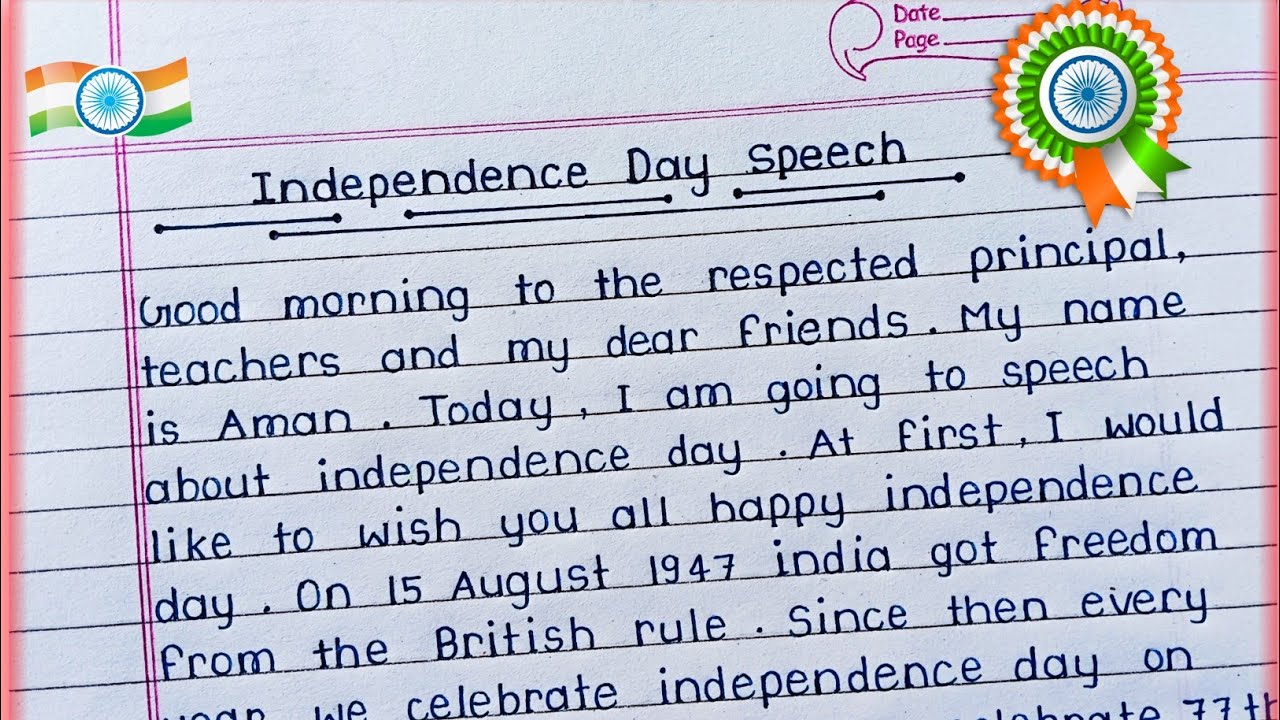 Date
Page
Independence Day Speech
Good morning to the respected principal,
teachers and my dear friends. My name
is Aman. Today, I am going to speech
about independence day. At first, I would
like to wish you all happy independence
day. On 15 August 1947 india got freedom
from the British rule. Since then every
year we celebrate independence day on
celebrate 77th